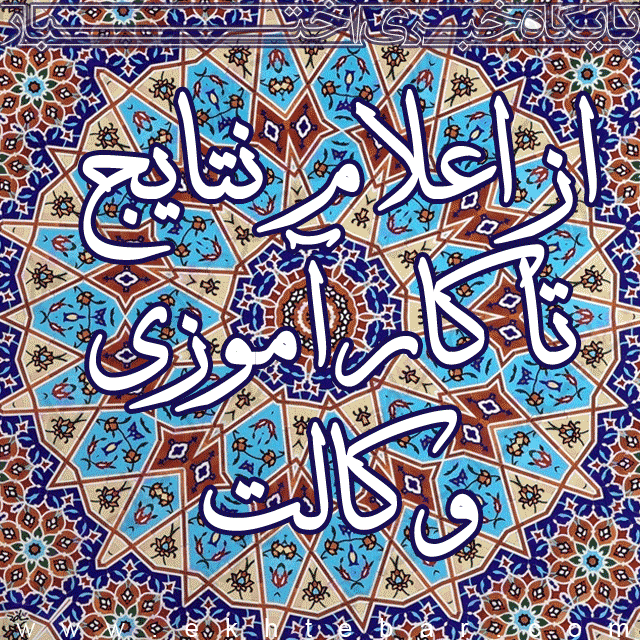 پایگاه خبری اختبار
از اعلام نتایج
تا کارآموزی
وکالت
www.ekhtebar.com